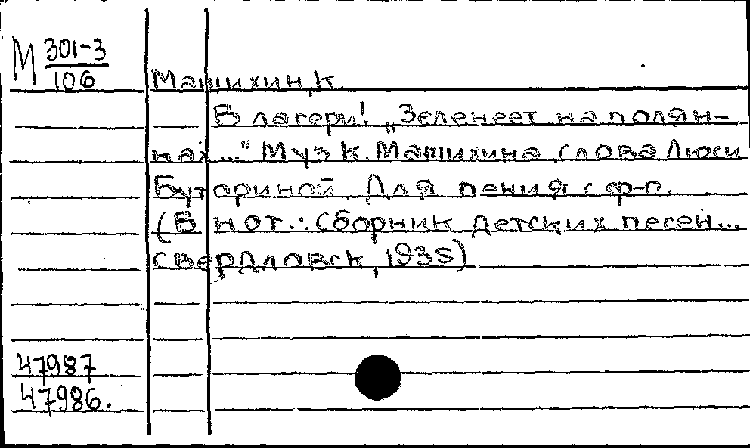 М 301-3
106
Машихин, К.
В лагери! "Зеленеет на полян-
нах..." Муз К. Машихина слова Люси
Буториной. Для пения с ф-п.
(В нот.: Сборник детских песен...
Свердловск, 1935)
47987
47986.